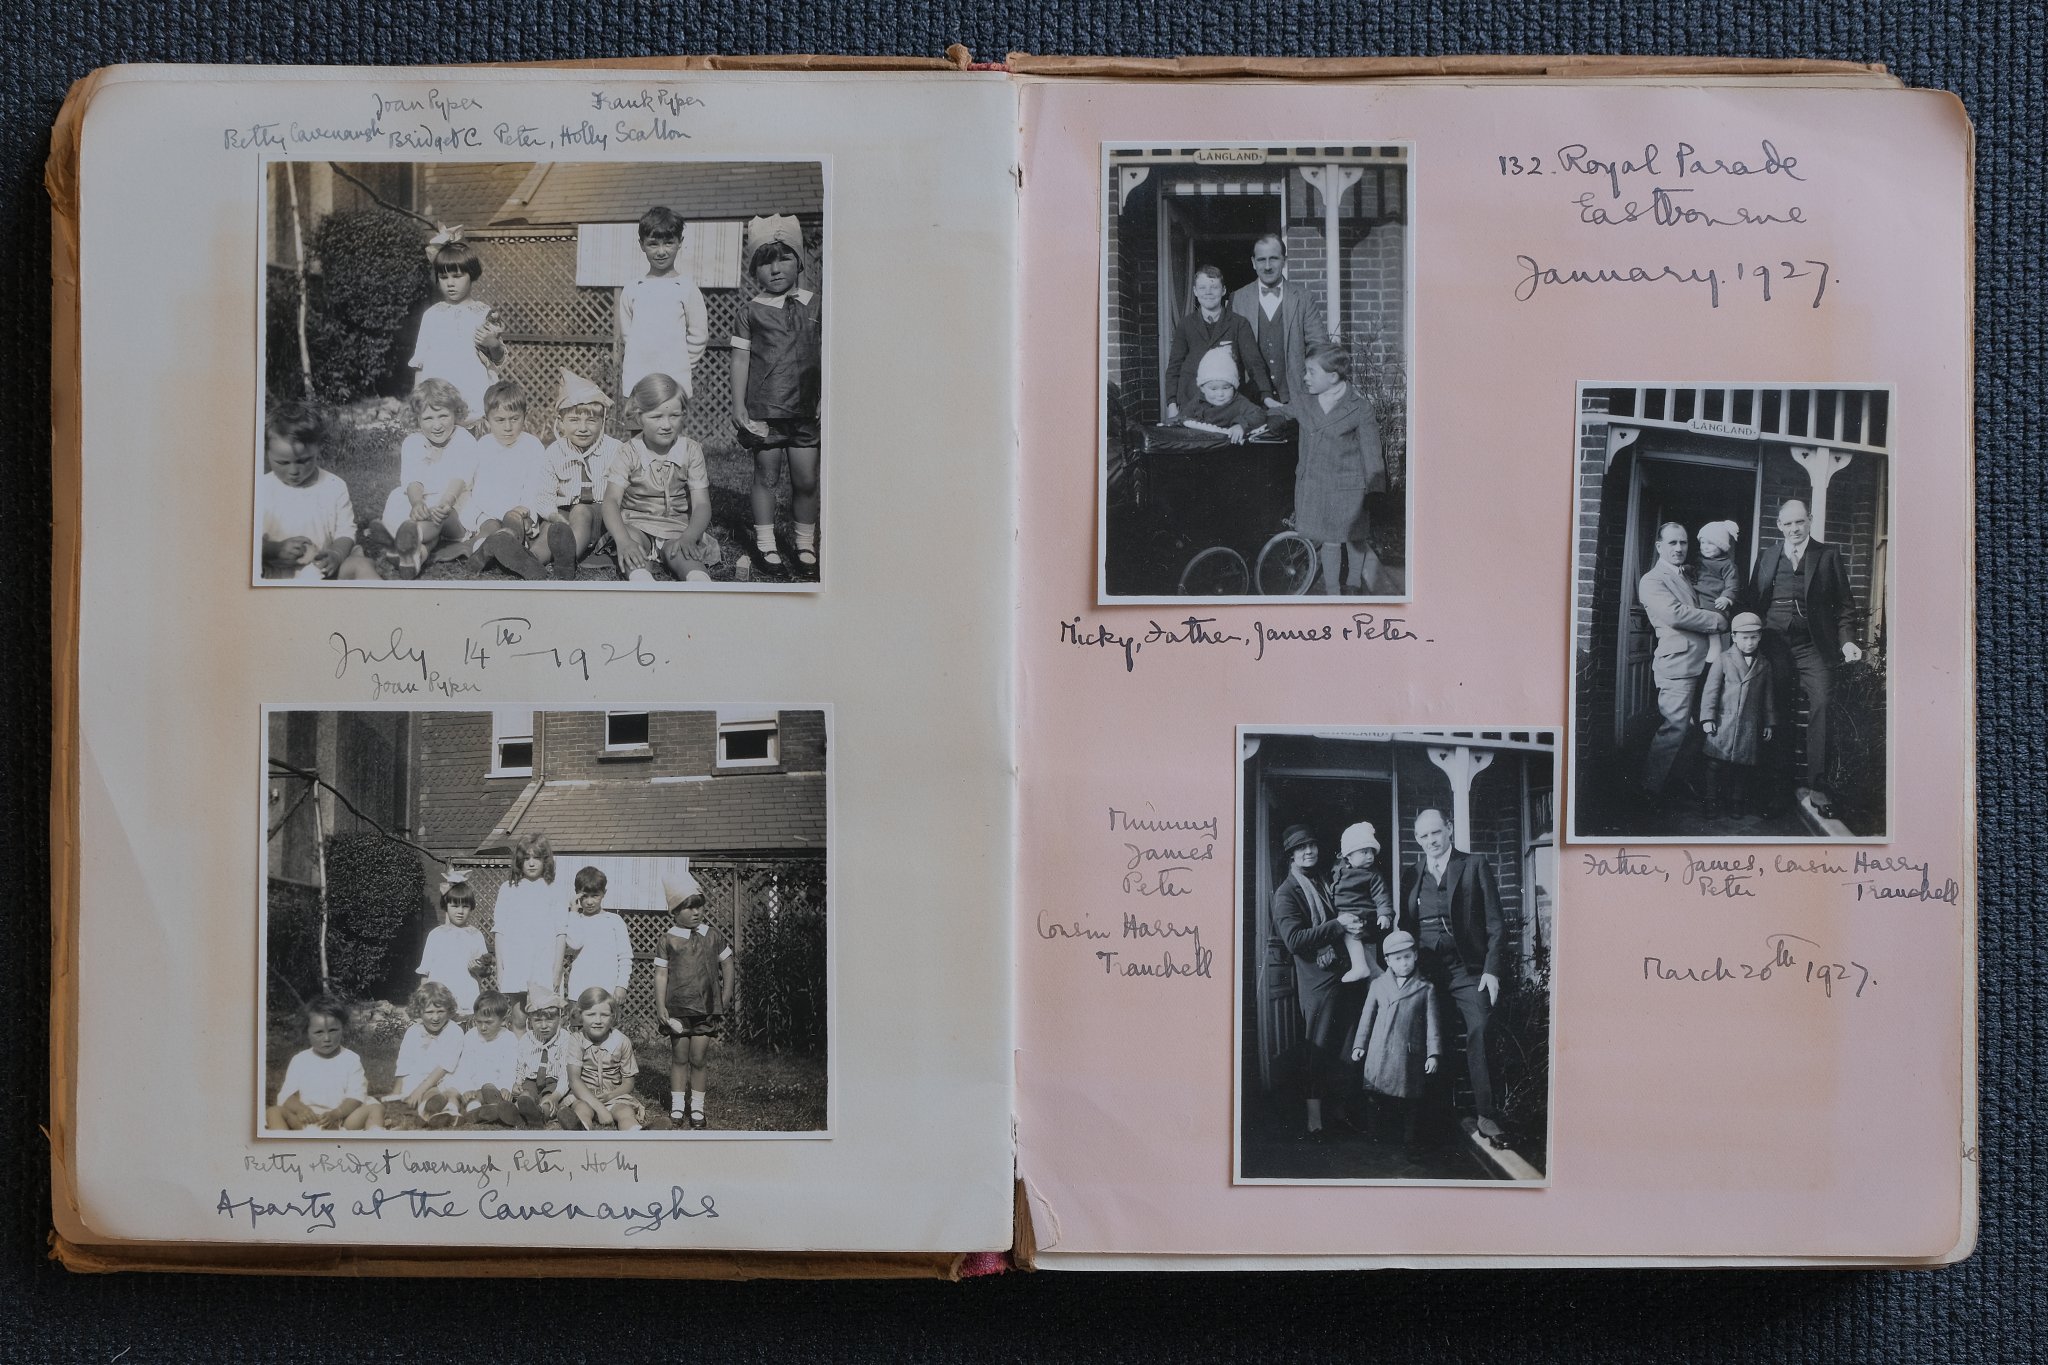 Joan Pyper Frank Pyper
Betty Cavenaugh Bridget C. Peter, Holly Scallon
July 14th 1926.
Joan Pyper
Betty + Bridget Cavenaugh, Peter, Holly
A party at the Cavenaughs
132. Royal Parade
Eastbourne
January. 1927.
LANGLAND
Micky, Father, James + Peter -
LANGLAND
Father, James, Cousin Harry
Peter Tranchell
March 20th 1927.
LANGLAND
Mummy
James
Peter
Cousin Harry
Tranchell